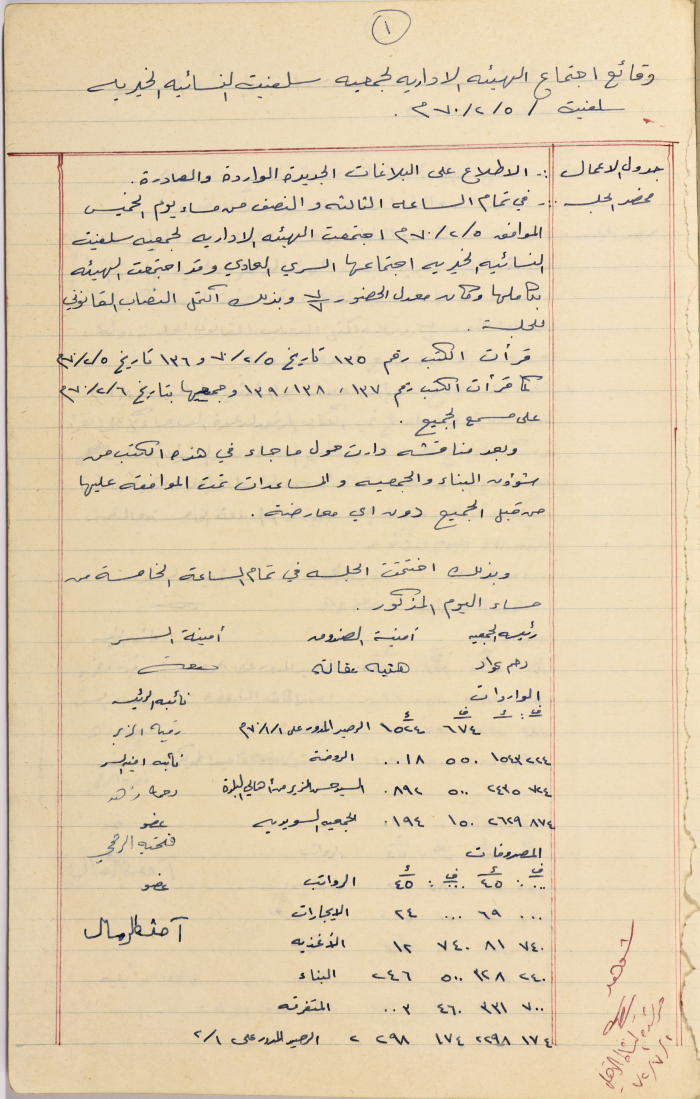 ١
وقائع اجتماع الهيئه الاداريه لجمعيه سلفيت النسائيه الخيريه
سلفيت / ٧٠/٢/٥م.
جدول الاعمال :. الاطلاع على البلاغات الجديدة الواردة والصادرة.
محضر الجلسه :. في تمام الساعه الثالثه والنصف من مساء يوم الخميس
الموافق ٧٠/٢/٥م اجتمعت الهيئه الاداريه لجمعيه سلفيت
النسائيه الخيريه اجتماعها السري العادي وقد اجتمعت الهيئه
بكاملها وكان معدل الحضور ٧/٧ وبذلك اكتمل النصاب القانوني
للجلسة.
قرأت الكتب رقم ١٣٥ تاريخ ٧٠/٢/٥ و ١٣٦ تاريخ ٧٠/٢/٥
كما قرأت الكتب رقم ١٣٧، ١٣٨، ١٣٩ وجميعها بتاريخ ٧٠/٢/٦م
على مسمع الجميع.
وبعد مناقشه دارت حول ما جاء في هذه الكتب من
شؤون البناء والجمعيه والمساعدات تمت الموافقه عليها
من قبل الجميع دون اي معارضة.
وبذلك اختتمت الجلسه في تمام الساعة الخامسة من
مساء اليوم المذكور.
رئيسه الجمعيه أمينة الصندوق أمينة السر
هنيه عقاله
الواردات نائبه الرئيسه
ف د ف د
٦٧٤ ١٥٢٤ الرصيد المدور على ٧٠/٨/١م رقيه الزير
٢٢٤ ١٥٤٣ ٥٥٠ ٠٠١٨ الروضة نائبه امينه السر
٧٢٤ ٢٤٣٥ ٥٠٠ ٠٨٩٢ السيد حسن الزير من أهالي البلدة
٨٧٤ ٢٦٢٩ ١٥٠ ٠١٩٤ الجمعيه السويديه عضو
المصروفات
ف د ف د
٠٠٠ ٤٥ ٠٠٠ ٤٥ الرواتب عضو
٠٠٠ ٦٩ ٠٠٠ ٢٤ الايجارات
٧٤٠ ٨١ ٧٤٠ ١٢ الأغذيه
٢٤٠ ٣٢٨ ٥٠٠ ٢٤٦ البناء
٧٠٠ ٣٣١ ٤٦٠ ٠٠٣ المتفرقه
١٧٤ ٢٢٩٨ ١٧٤ ٢٢٩٨ الرصيد المدور على ٢/١